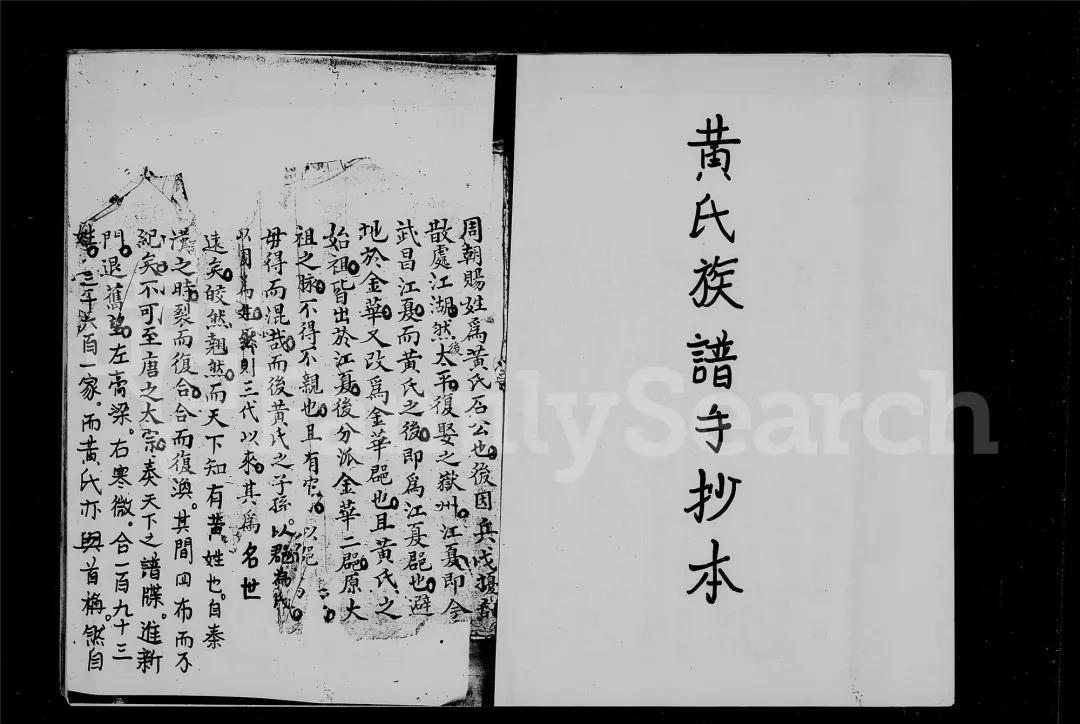 黃氏族譜手抄本
周朝賜姓爲黃氏石公也後因兵戊擾
散處江湖然後太平復娶之嶽州江夏即今
武昌江夏而黃氏之後即爲江夏郡也避
地於金華又改爲金華郡也且黃氏之
始祖皆出於江夏後分派金華二郡原大
祖之脉不得不親也且有官以郡
毋得而混哉而後黃氏之子孫以郡為氏
以國為姓然則三代以來其爲名世
遠矣皎然翹然而天下知有黃姓也自秦
漢之時裂而復合合而復渙其間四布而不
紀矣不可至唐之太宗奏天下之譜牒進新
門退舊望左膏梁右寒微合一百九十三
姓三千六百一家而黃氏亦與首稱然自
FamilySearch